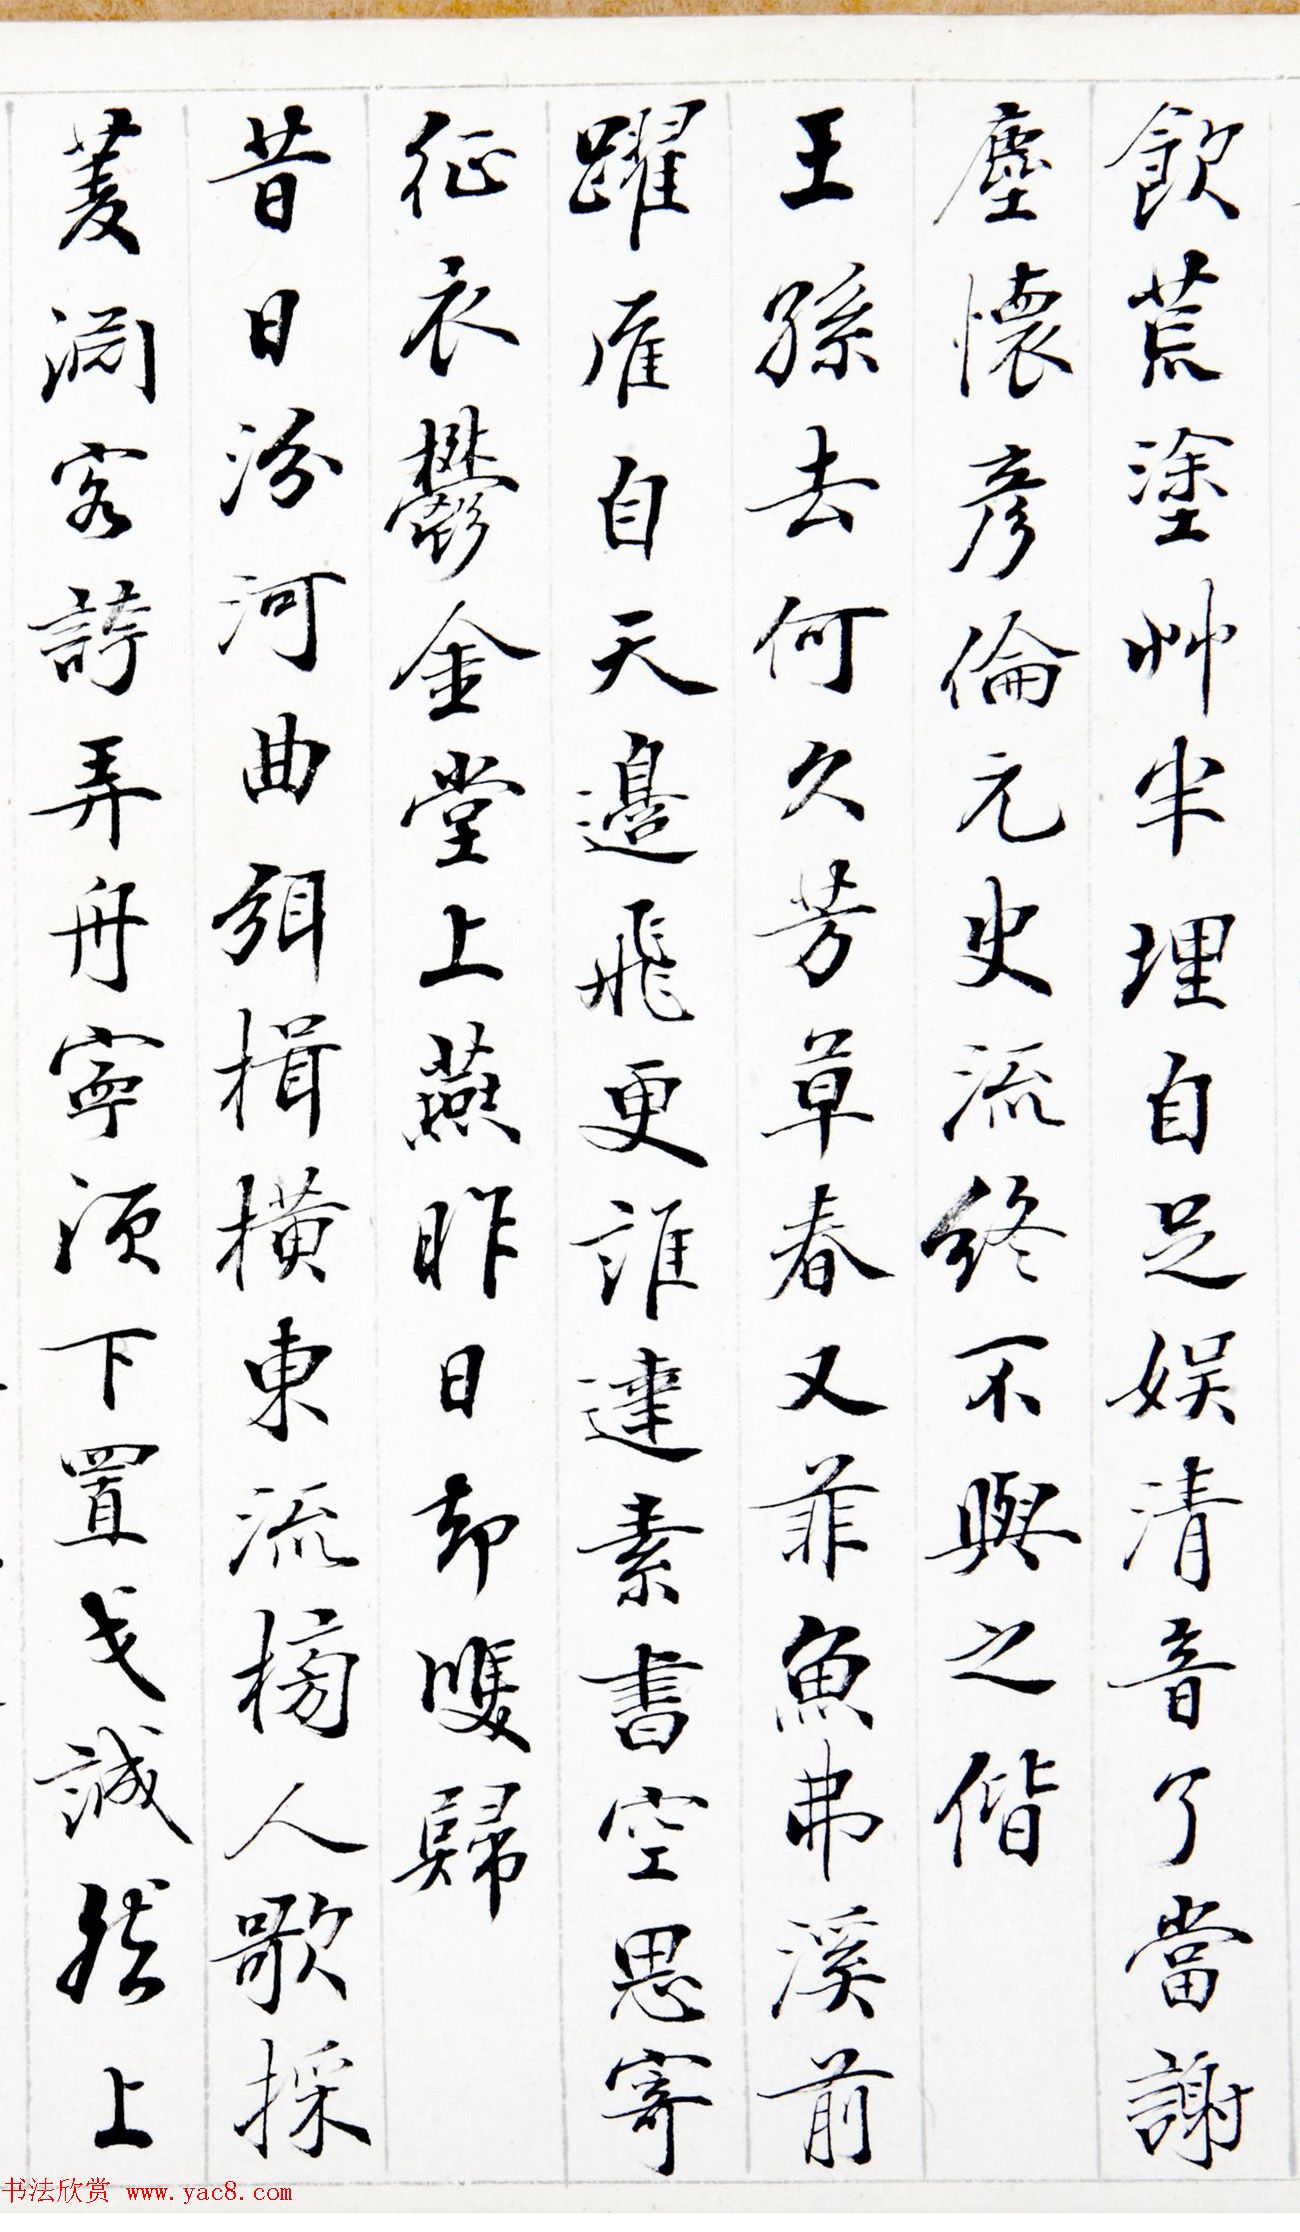 飲荒塗艸半埋自足娛清音了當謝
塵懷彦倫元史流終不與之偕
王孫去何久芳草春又菲魚弗溪前
躍鴈自天邉飛更誰達素書空思寄
征衣鬱金堂上燕昨日却雙歸
昔日汾河曲弭楫橫東流榜人歌採
菱澗客誇弄舟寧須下置戈誠然上
书法欣赏 www.yac8.com